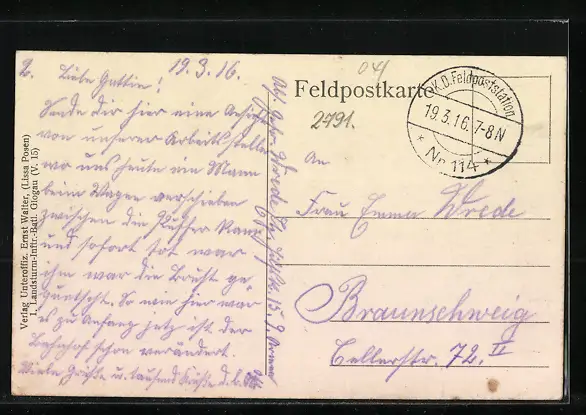 2. Liebe Gattin! 19.3.16.
Sende dir hier eine Ansicht
von unserer Arbeitsstelle
wo uns heute ein Mann
beim Wagen verschieben
zwischen die Puffer kam
und sofort tot war
ihm war die Brust ge-
quetscht. So wie hier war
es zu Anfang jetz ist der
Bahnhof schon verändert.
Viele Grüße u. tausend Küße d. l.
Verlag Unteroffiz. Ernst Walter, (Lissa Posen)
I. Landsturm-Inftr.-Batl. Glogau (V. 15)
Wrede
Feldpostkarte
2791.
K.D. Feldpoststation
19.3.16.7-8N
* Nr. 114 *
An
Frau Emma Wrede
Braunschweig
Cellerstr. 72. II